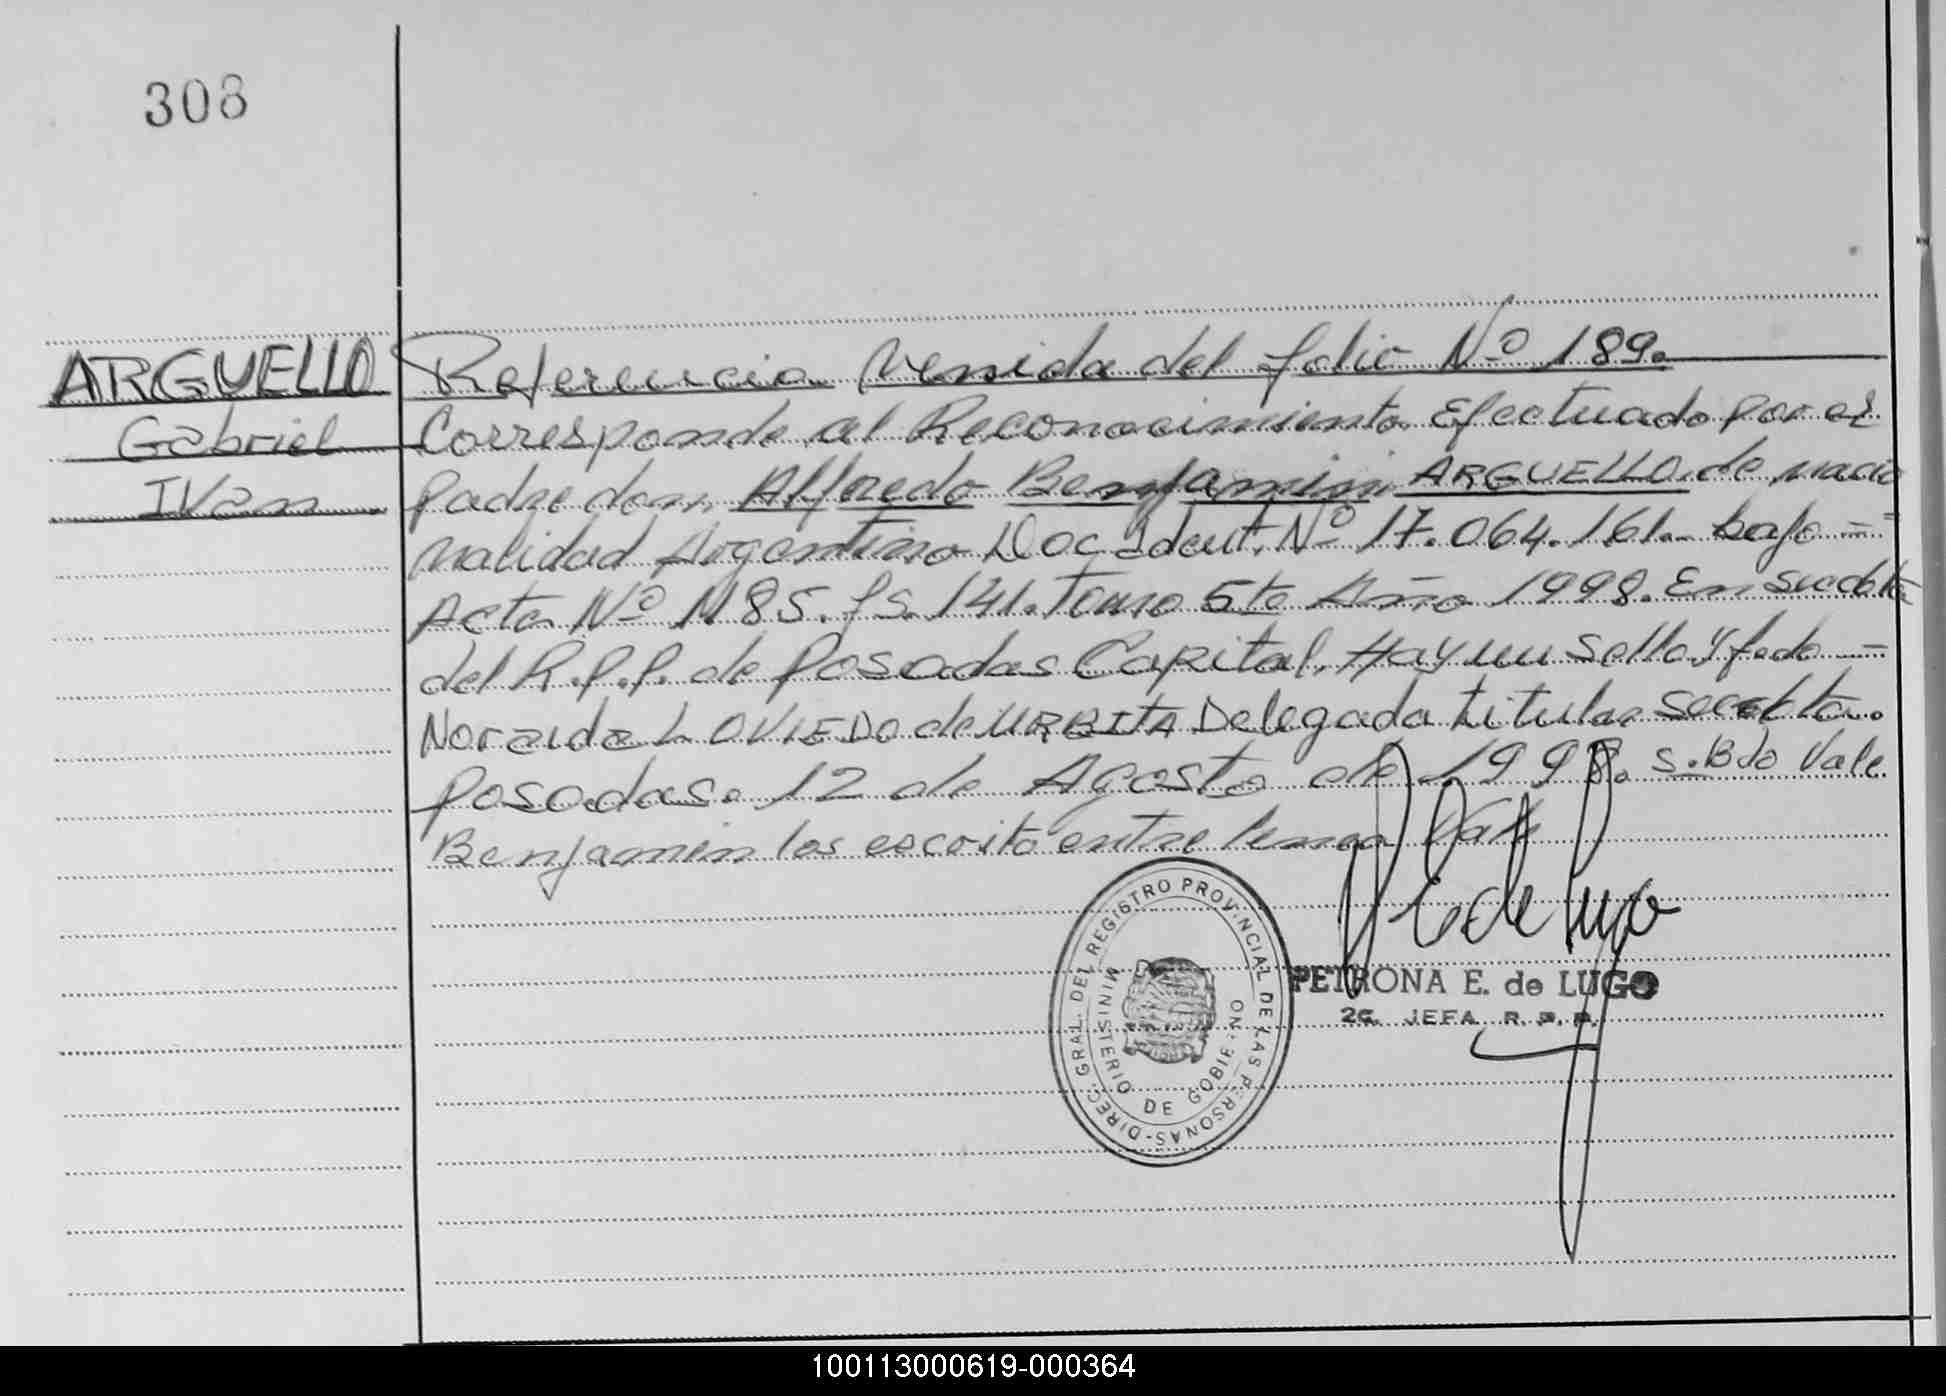 308
ARGUELLO
Gabriel
Ivan
Referencia Venida del folio Nº 189.
Corresponde al Reconocimiento Efectuado por el
padre don, Alfredo Benjamin ARGUELLO de nacio
nalidad Argentino Doc Ident. Nº 17.064.161.- bajo =
Acta Nº 1185. fs. 141. Tomo 5to Año 1998. En
del R.P.P. de Posadas Capital. Hay un sello y fdo -
Noraida L OVIEDO de URBITA Delegada titular
Posadas. 12 de Agosto de 1998. S. Bdo Vale
Benjamin los escrito entre linea Vale
DIREC. GRAL. DEL REGISTRO PROVINCIAL DE LAS PERSONAS-
MINISTERIO DE GOBIERNO
PETRONA E. de LUGO
2G. JEFA R. P. P.
100113000619-000364